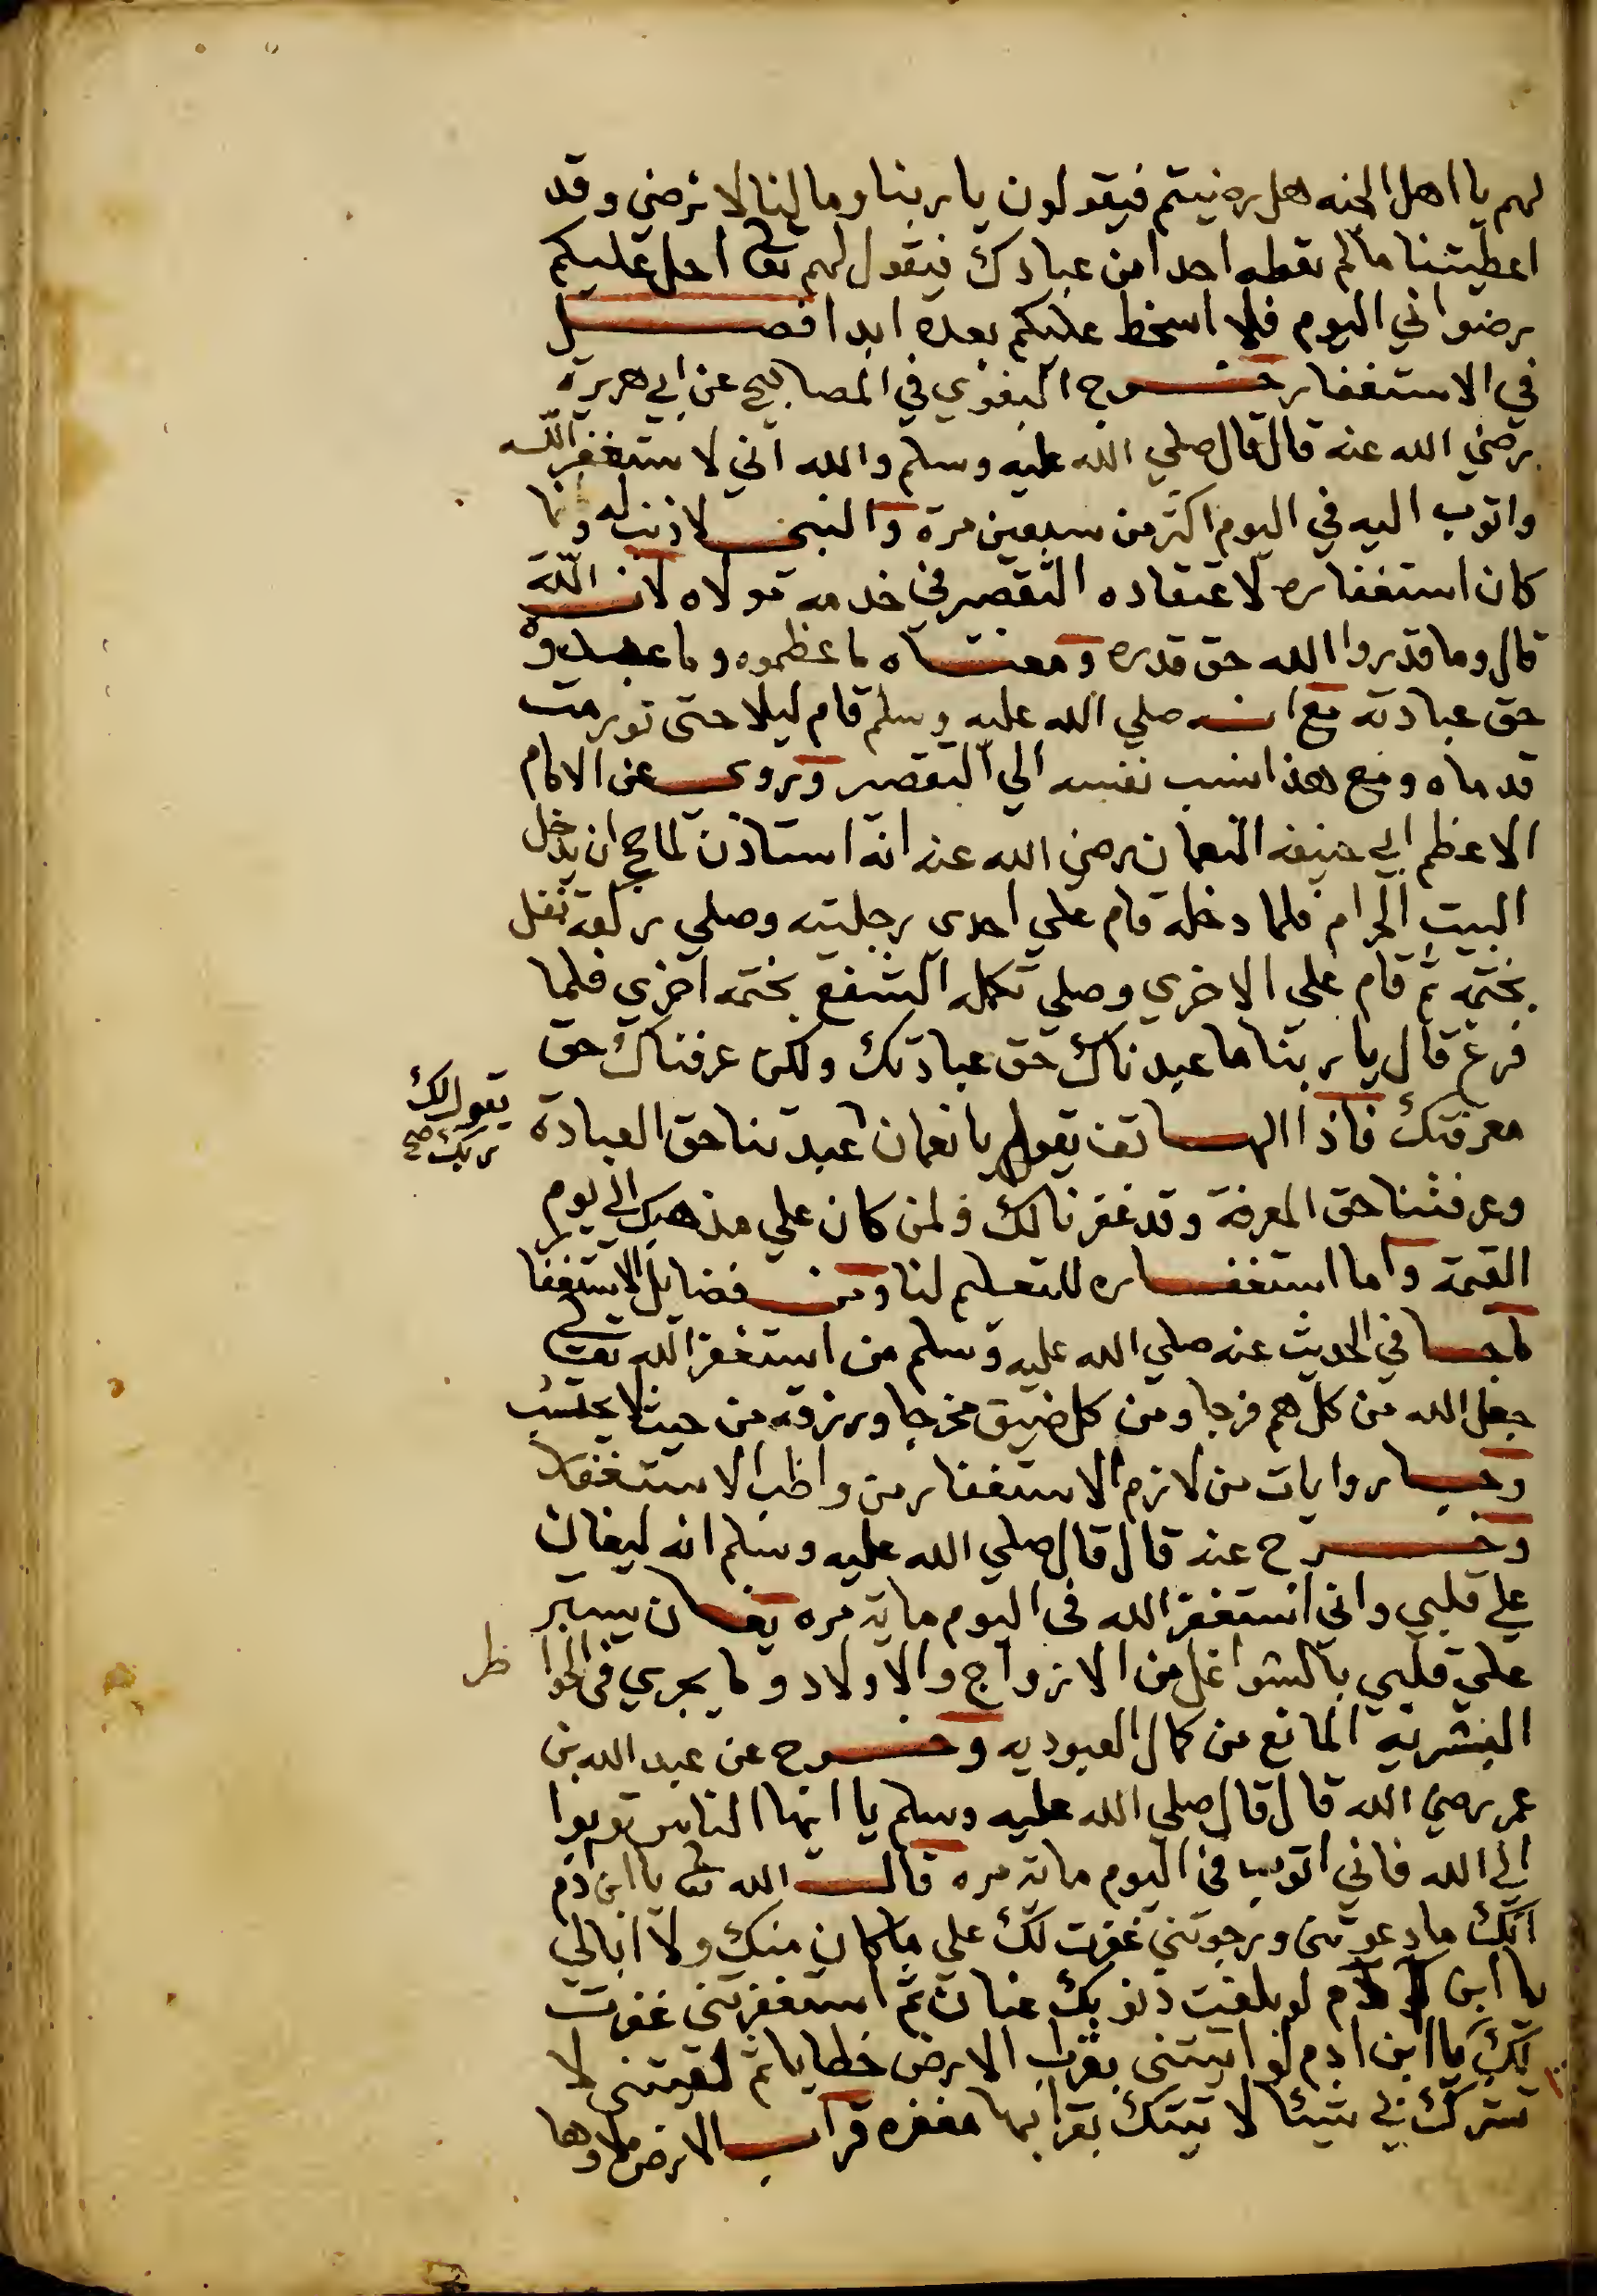 لهم يا اهل الجنه هل رضيتم فيقولون يا ربنا وما لنا لا نرضي وقد
اعطيتنا ما لم تعطه احدا من عبادك فيقول لهم تعا احل عليكم
رضواني اليوم فلا اسخط عليكم بعده ابدا فصل
في الاستغفار خرج البغوي في المصابيح عن ابي هريرة
رضي الله عنه قال قال صلي الله عليه وسلم والله اني لاستغفر الله
واتوب اليه في اليوم اكثر من سبعين مرة والنبي لا ذنب له وانما
كان استغفاره لاعتقاده التقصير في خدمه مولاه لان الله
قال وما قدروا الله حق قدره ومعناه ما عظموه وما عبدوه
حق عبادته مع انه صلي الله عليه وسلم قام ليلا حتى تورمت
قدماه ومع هذا نسب نفسه الي التقصير وروى عن الامام
الاعظم ابي حنيفه النعمان رضي الله عنه انه استاذن لما حج ان يدخل
البيت الحرام فلما دخله قام علي احدى رجليه وصلي ركعة نفل
بختمه ثم قام علي الاخري وصلي تكمله الشفع بختمه اخري فلما
فرغ قال يا ربنا ما عبدناك حق عبادتك ولكن عرفناك حق
معرفتك فاذا الهاتف يقول يا نعمان عبدتنا حق العبادة
يقول لك
ربك صح
وعرفتنا حق المعرفة وقد غفرنا لك ولمن كان علي مذهبك الي يوم
القيمة واما استغفاره للتعليم لنا ومن فضايل الاستغفار
ما جا في الحديث عنه صلي الله عليه وسلم من استغفر الله تعالي
جعل الله من كل هم فرجا ومن كل ضيق مخرجا ورزقه من حيث لا يحتسب
وجا روايات من لازم الاستغفار من واظب الاستغفار
وخرج عنه قال قال صلي الله عليه وسلم انه ليغان
علي قلبي واني استغفر الله في اليوم ماية مره يغان يستر
علي قلبي بالشواغل من الازواج والاولاد وما يجري في الخوا طر
البشريه المانع من كمال العبوديه وخرج عن عبد الله بن
عمر رضي الله قال قال صلي الله عليه وسلم يا ايها الناس توبوا
الي الله فاني اتوب في اليوم ماية مره قال الله تعا يا ابن ادم
انك ما دعوتني ورجوتني غفرت لك علي ما كان منك ولا ابالي
يا ابن ادم لو بلغت ذنوبك عنان ثم استغفرتني غفرت
لك يا ابن ادم لو اتيتني بقراب الارض خطايا ثم لقيتني لا
تشرك بي شيئا لاتيتك بقرابها مغفره قراب الارض ملاوها